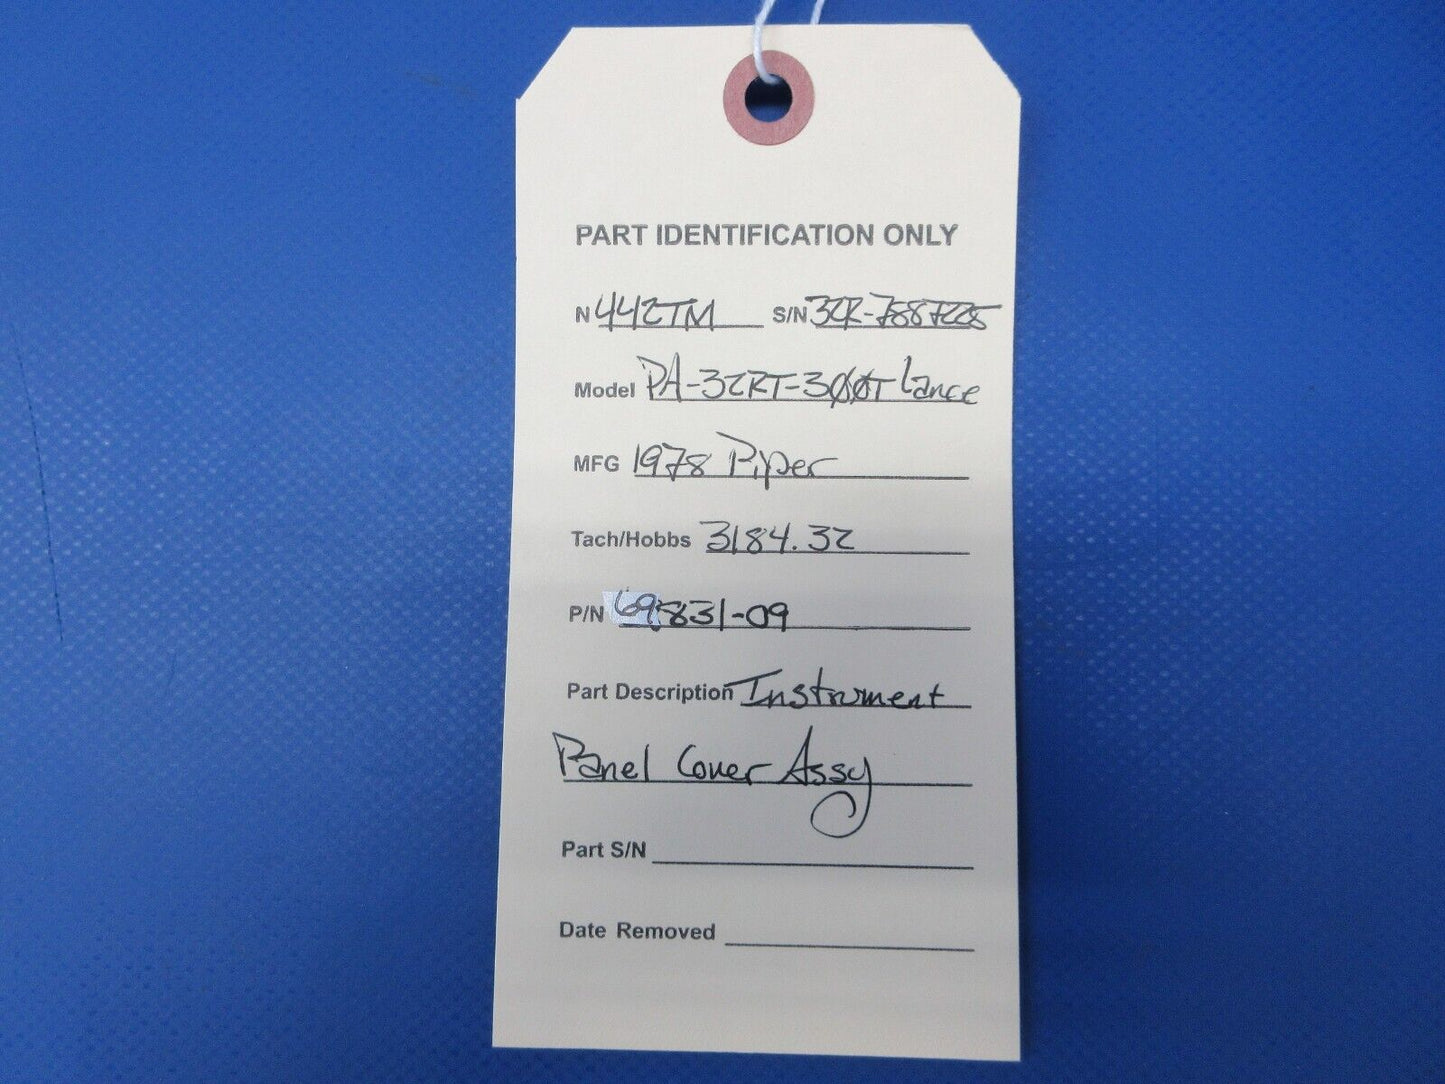 PART IDENTIFICATION ONLY
N 442TM S/N 32R-7887225
Model PA-32RT-300T Lance
MFG 1978 Piper
Tach/Hobbs 3184.32
P/N 69831-09
Part Description Instrument
Panel Cover Assy
Part S/N
Date Removed